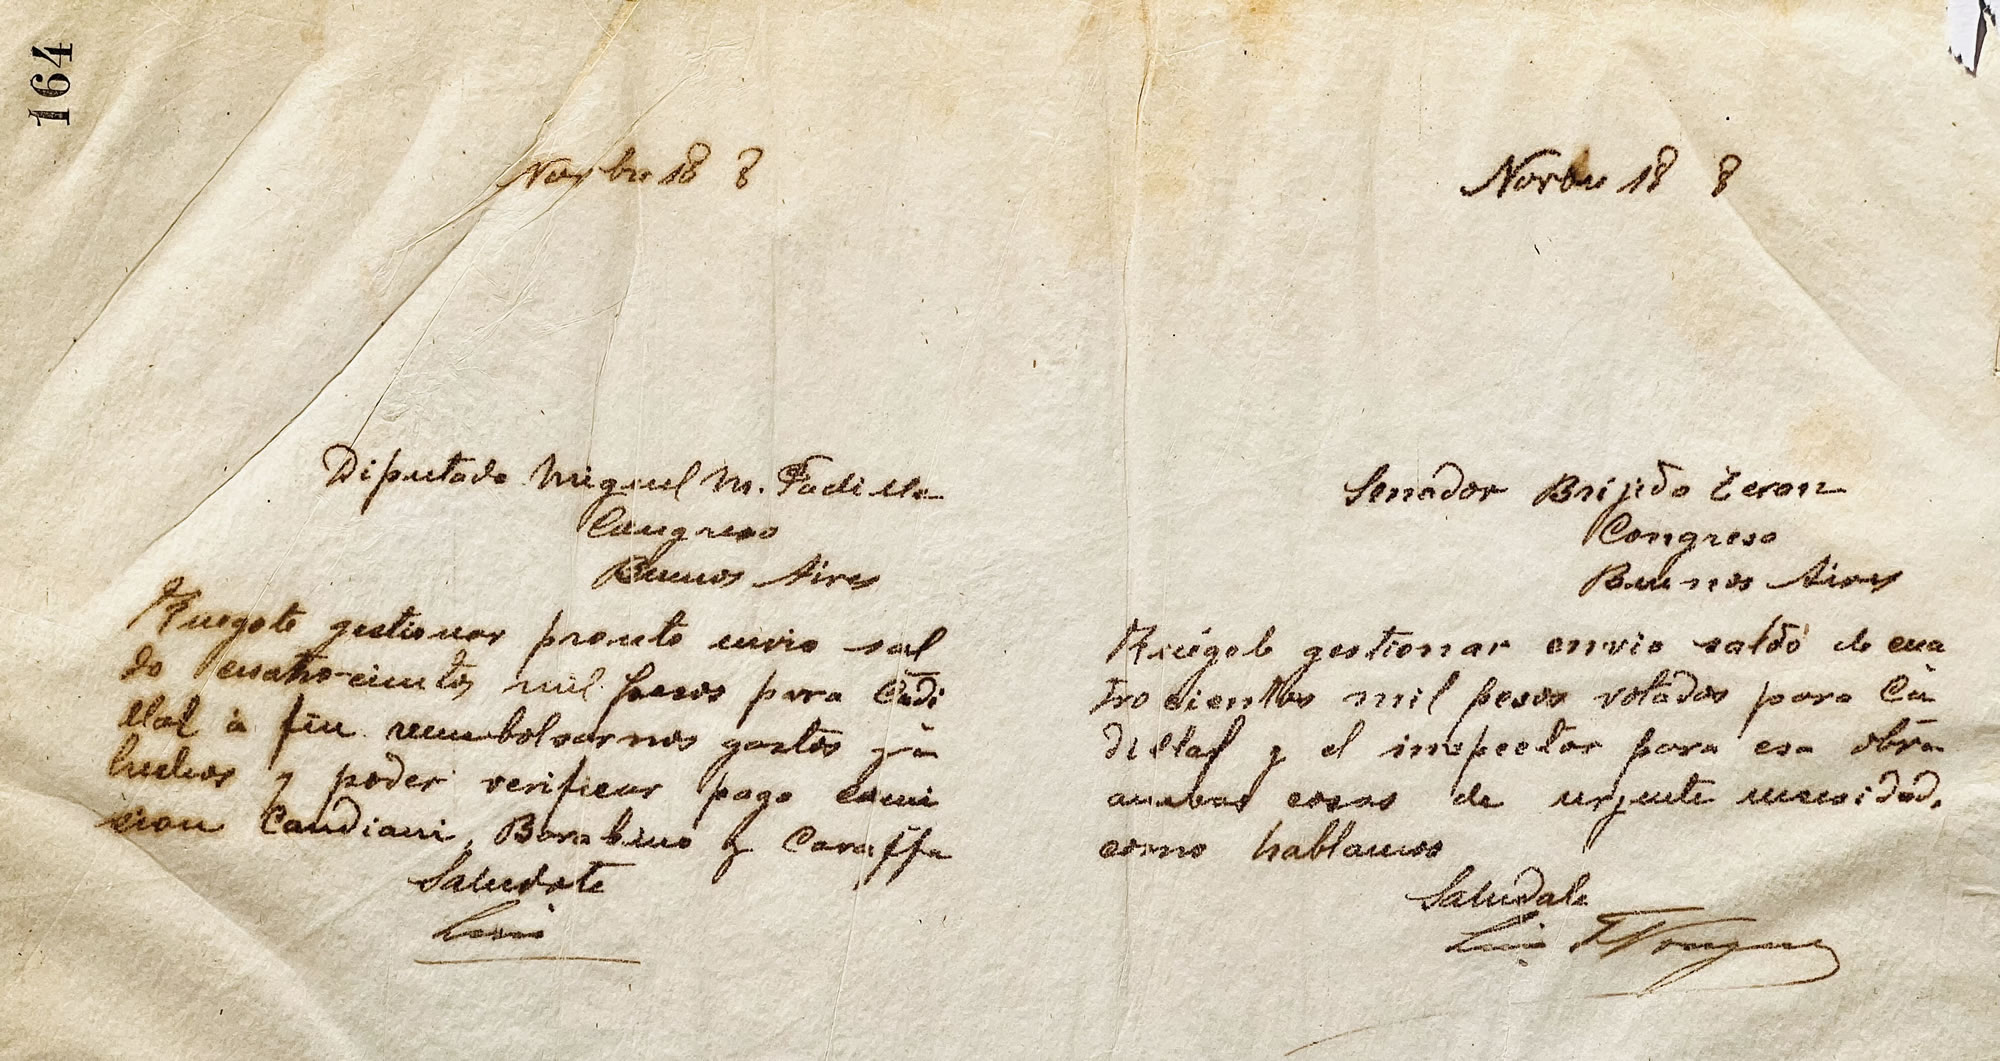 164
Novbre 18 8
Diputado Miguel M. Padilla
Congreso
Buenos Aires
Ruegote gestionar pronto envio sal
do cuatrocientos mil pesos para Cadi
llal à fin reembolsarnos gastos yà
hechos y poder verificar pago comi
sion Candiani, Barabino y Caraffa
Saludote
Luis
Novbre 18 8
Senador Brijido Teran
Congreso
Buenos Aires
Ruégole gestionar envio saldo de cua
trocientos mil pesos votados para Ca
dillal y el inspector para esa obra
ambas cosas de urjente necesidad,
como hablamos
Saludale
Luis F Nougues